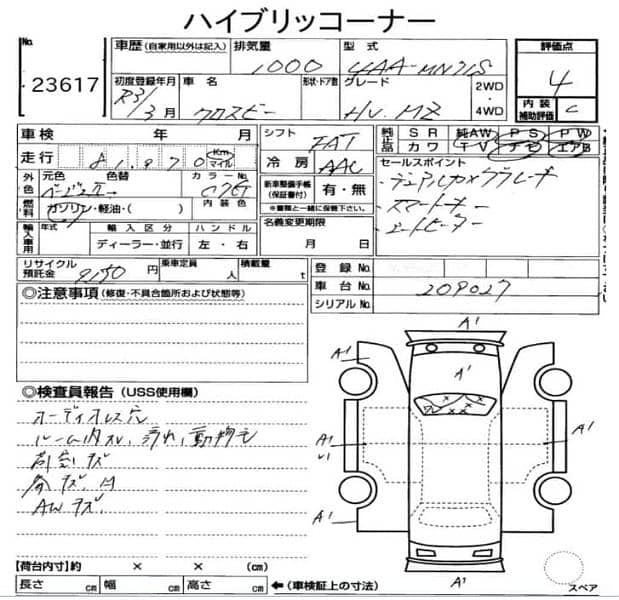 ハイブリッコーナー
No.
23617
車歴 (自家用以外は記入)
排気量
1000
型式
4AA-MN71S
評価点
4
内装
補助評価
C
初度登録年月
R3/3月
車名
クロスビー
形状・ドア数
グレード
HV. MZ
2WD
・
4WD
車検 年 月
走行 81,970 Km マイル
シフト
FAT
冷房
AAC
純正品
SR 純AW PS PW
カワ TV ナビ エアB
外色
元色 色替
ベージュⅡ
カラーNo.
内装色
燃料
ガソリン・軽油・( )
新車整備手帳
(保証書付)
有・無
※書類と一緒に保管下さい。
セールスポイント
デュアルカメラブレーキ
スマートキー
シートヒーター
輸入車用
年式
輸入区分
ハンドル
ディーラー・並行
左・右
名義変更期限
月 日
リサイクル
預託金
9150円
乗車定員
人
積載量
t
登録No.
車台No.
209027
シリアルNo.
◎注意事項 (修復・不具合箇所および状態等)
◎検査員報告 (USS使用欄)
オーディオレス穴
ルーム内スレ、汚れ、動物毛
AWキズ
A'
A'
A'
A'
A'
A'
A'
A'
【荷台内寸】約 × × (cm)
長さ cm 幅 cm 高さ cm
←(車検証上の寸法)
スペア